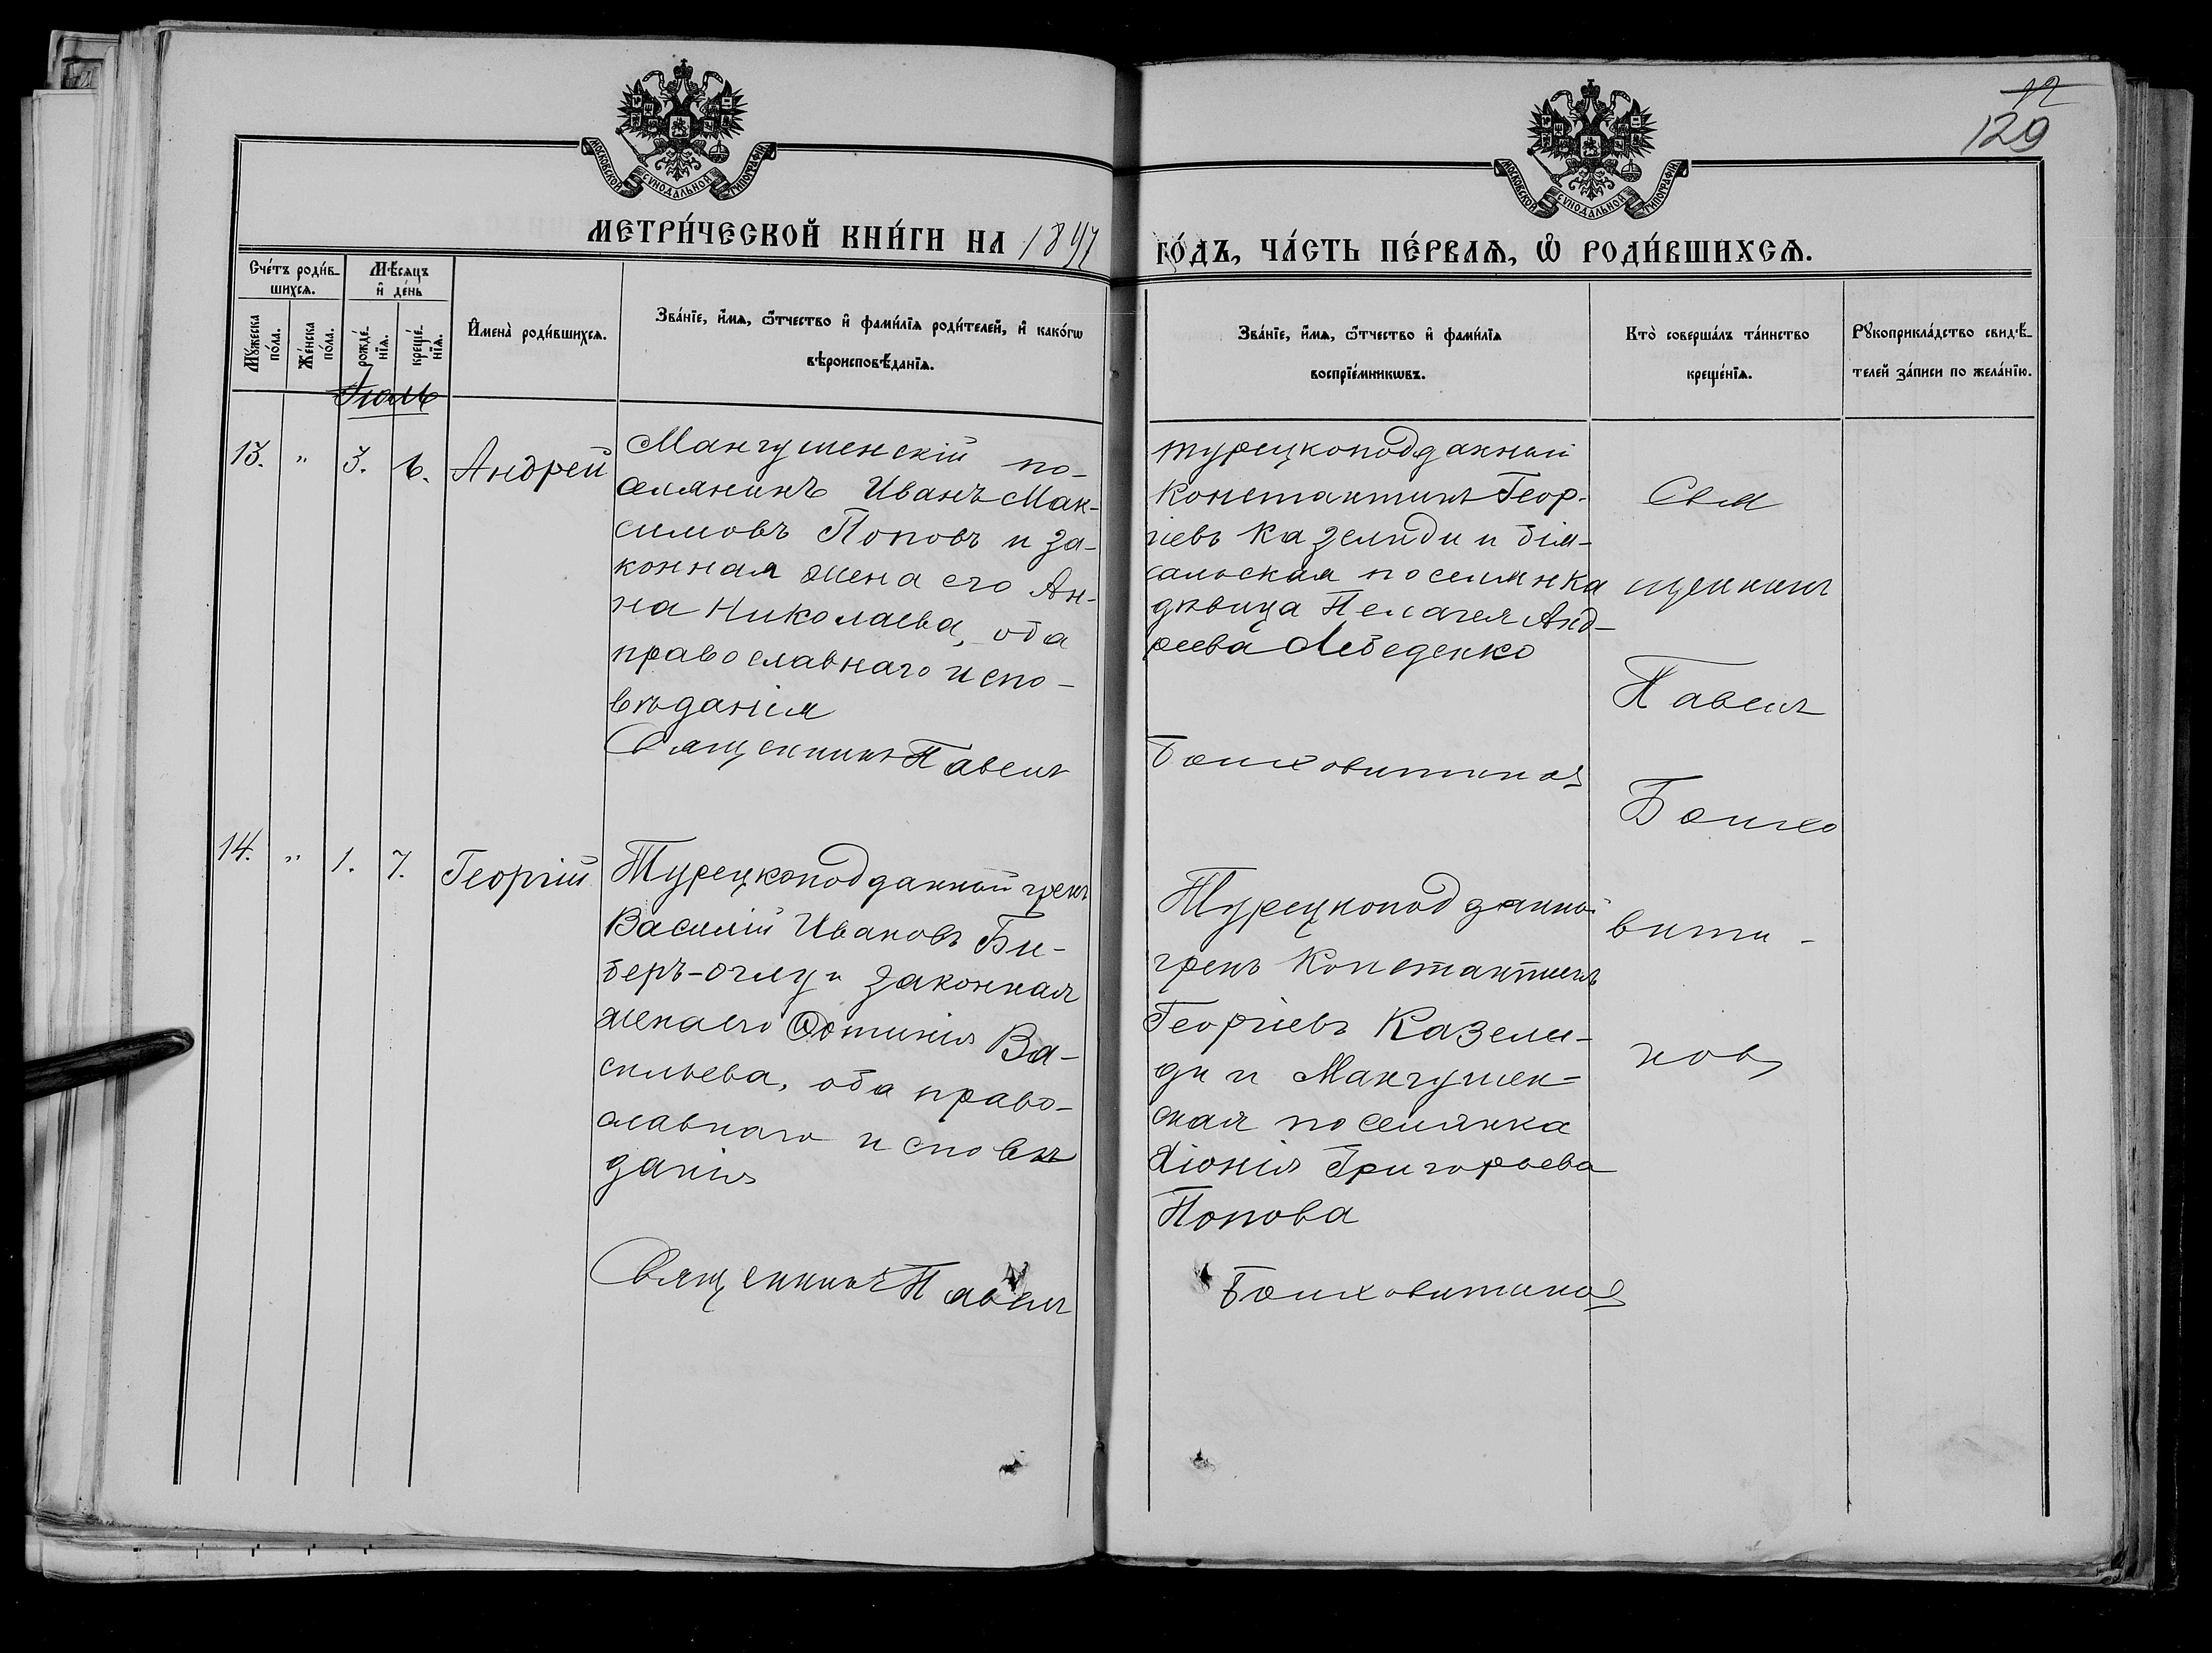 12
129
МОСКОВСКОЙ СѴНОДАЛЬНОЙ ТИПОГРАФІИ
МОСКОВСКОЙ СѴНОДАЛЬНОЙ ТИПОГРАФІИ
МЕТРИ́ЧЕСКОЙ КНИ́ГИ НА 1897 ГО́ДЪ, ЧА́СТЬ ПЕ́РВАѦ, Ѽ РОДИ́ВШИХСѦ.
Сче́тъ роди́в-
шихсѧ.
Мꙋ́жеска
по́ла.
Же́нска
по́ла.
Мѣ́сѧцъ
и҆ де́нь
рожде́-
нїѧ.
креще́-
нїѧ.
И҆мена̀ роди́вшихсѧ.
Зва́нїе, и҆́мѧ, ѻ҆́тчество и҆ фами́лїѧ роди́телей, и҆ како́гѡ
вѣроисповѣ́данїѧ.
Зва́нїе, и҆́мѧ, ѻ҆́тчество и҆ фами́лїѧ
воспрїе́мникѡвъ.
Кто̀ соверша́лъ та́инство
креще́нїѧ.
Рꙋкоприкла́дство свидѣ́-
телей за́писи по жела́нїю.
Іюль
13. " 3. 6. Андрей
Мангушенскій по-
селянинъ Иванъ Мак-
симовъ Поповъ и за-
конная жена его Ан-
на Николаева, оба
православнаго испо-
вѣданія
Священникъ Павелъ
турецкоподданный
Константинъ Геор-
гіевъ Казелиди и
поселянка
дѣвица Пелагея Анд-
реева Лебеденко
Болховитиновъ
Свя
щенникъ
Павелъ
Болхо
вити-
новъ
14. " 1. 7. Георгій
Турецкоподданный грекъ
Василій Ивановъ Би-
беръ-оглу и законная
жена его Фотинія Ва-
сильева, оба право-
славнаго исповѣ
данія
Священникъ Павелъ
Турецкоподданный
грекъ Константинъ
Георгіевъ Казели-
ди и Мангушен-
ская поселянка
Хіонія Григорьева
Попова
Болховитиновъ